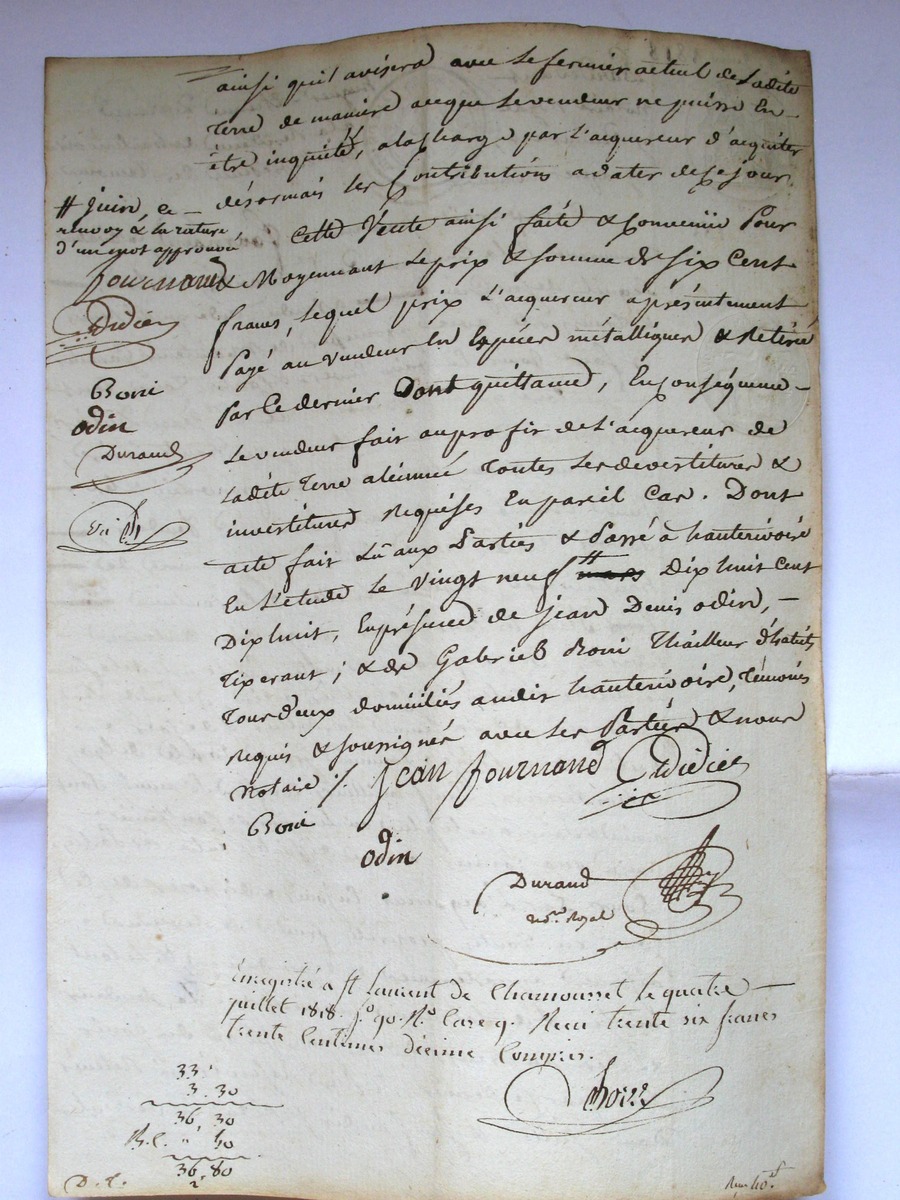 ainsi qu'il avisera avec le fermier actuel de ladite
terre de manière aceque le vendeur ne puisse en
être inquiété, a la charge par l'acquereur d'acquiter
désormais les Contributions a dater de ce jour.
Cette Vente ainsi faite & Convenüe Pour
& Moyennant le prix & somme de six Cent
francs, lequel prix l'acquereur a présentement
Payé au Vendeur En Espèces métalliques & Retiré
Par Ce dernier Dont quittance, En Conséquence
Le vendeur fait au profit de l'acquereur de
Ladite Terre toutes Les devestitures &
investitures Requises En pareil Cas. Dont
acte fait Lû aux Parties & Passé à hauterivoire
En L'etude Le Vingt neuf # mars Dix huit Cent
Dix huit, En présence de Jean Denis odin,
Tixerant ; & de Gabriel Boni Thailleur d'habits
Tous deux domiciliés audit hauterivoire, Témoins
Requis & soussignés avec Les Parties & nous
notaire ./. Jean fournand Didier
Boni
odin
Durand
not.re Royal
# Juin, ce
renvoy & la rature
d'un mot approuvé
fournand
Didier
Boni
odin
Durand
Enregistré à St Laurent de Chamousset le quatre
juillet 1818. f.o 90. R.o Case 9. Reçu trente six francs
trente Centimes décime Compris.
33
3. 30
36, 30
" 50
36, 80
D. L.